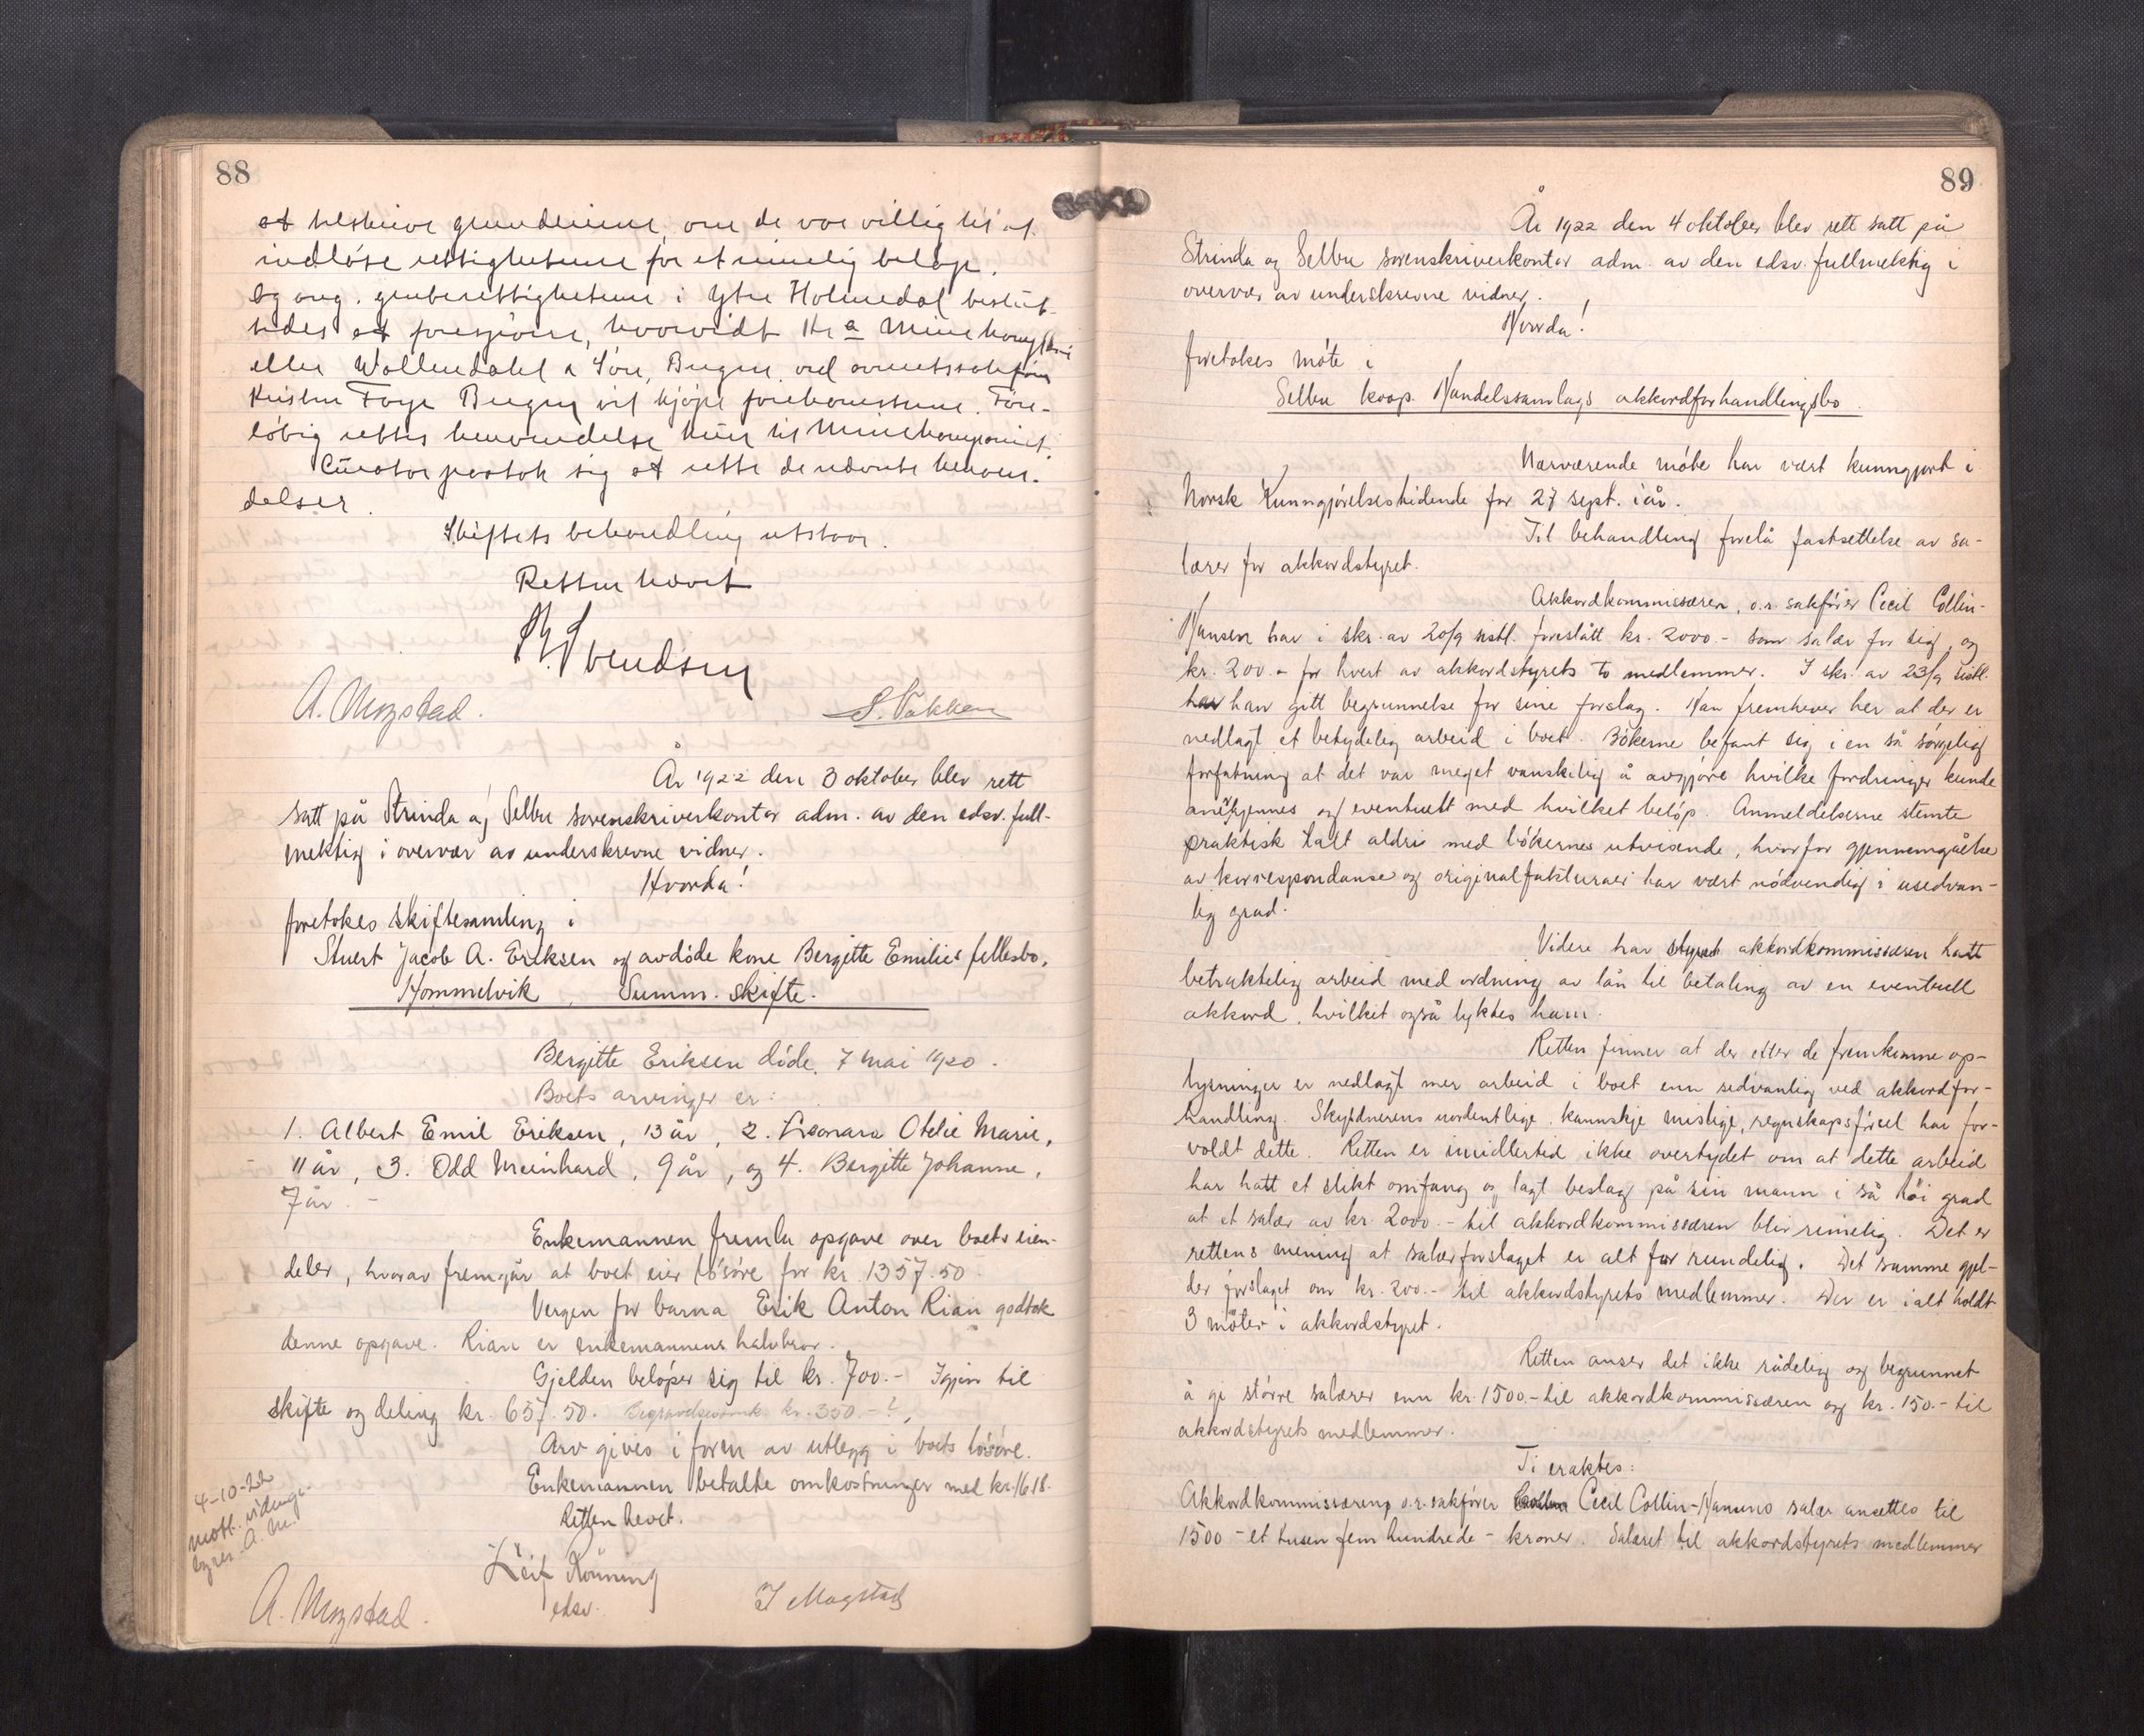 88
at tilskrive grundeierne, om de var villig til at
indløse rettighetene for et rimelig beløp.
Og ang. gruberettighetene i Ytre Holmedal beslut-
tedes at forespørre, hvorvidt Kr.a Minekompani
eller Wallendahl & Søn, Bergen, ved overretssakfører
Kristen Faye Bergen vil kjøpe forekomstene. Fore-
løbig rettes henvendelse kun til Minekompaniet.
Curator paatok sig at rette de nævnte henven-
delser.
Skiftets behandling utstaar.
Retten hævet
Svendsen
A. Mogstad. S. Bakken
År 1922 den 3 oktober blev rett
satt på Strinda og Selbu sorenskriverkontor adm. av den edsv. full-
mektig i overvær av underskrevne vidner.
Hvorda!
foretokes skiftesamling i
Stuert Jacob A. Eriksen og avdøde kone Bergitte Emilies fellesbo,
Hommelvik, Summ. skifte.
Bergitte Eriksen døde 7 mai 1920.
Boets arvinger er:
1. Albert Emil Eriksen, 13 år, 2. Leonara Otelie Marie,
11 år, 3. Odd Meinhard, 9 år, og 4. Bergitte Johanne,
7 år. -
Enkemannen fremla opgave over boets eien-
deler, hvorav fremgår at boet eier løsøre for kr. 1357.50.
Vergen for barna Erik Anton Rian godtok
denne opgave. Rian er enkemannens halvbror.
Gjelden beløper sig til kr. 700.- Igjen til
skifte og deling kr. 657.50. Begravelsesomk. kr. 350.-?,
Arv gives i form av utlegg i boets løsøre.
Enkemannen betalte omkostninger med kr. 16.18.
Retten hevet.
4-10-22
mott. vidnege-
byrer A. M.
Leif Rønning
edsv.
A. Mogstad. I Mogstad
89
År 1922 den 4 oktober blev rett satt på
Strinda og Selbu sorenskriverkontor adm. av den edsv. fullmektig i
overvær av underskrevne vidner.
Hvorda!
foretokes møte i
Selbu koop. Handelssamlags akkordforhandlingsbo.
Nærværende møte har vært kunngjort i
Norsk Kunngjørelsestidende for 27 sept. iår.
Til behandling forelå fastsettelse av sa-
lærer for akkordstyret.
Akkordkommissæren, o.r. sakfører Cecil Collin-
Hansen har i skr. av 20/9 sistl. foreslått kr. 2000.- som salær for sig, og
kr. 200.- for hvert av akkordstyrets to medlemmer. I skr. av 23/9 sistl.
har han gitt begrunnelse for sine forslag. Han fremhever her at der er
nedlagt et betydelig arbeid i boet. Bøkerne befant sig i en så sørgelig
forfatning at det var meget vanskelig å avgjøre hvilke fordringer kunde
anerkjennes og eventuelt med hvilket beløp. Anmeldelserne stemte
praktisk talt aldri med bøkernes utvisende, hvorfor gjennemgåelse
av korrespondanse og originalfakturaer har vært nødvendig i usedvan-
lig grad.
Videre har styret akkordkommissæren hatt
betraktelig arbeid med ordning av lån til betaling av en eventuell
akkord, hvilket også lyktes ham.
Retten finner at der efter de fremkomne op-
lysninger er nedlagt mer arbeid i boet enn sedvanlig ved akkordfor-
handling. Skyldnerens uordentlige, kannskje mislige, regnskapsførsel har for-
voldt dette. Retten er imidlertid ikke overtydet om at dette arbeid
har hatt et slikt omfang og lagt beslag på sin mann i så høi grad
at et salær av kr. 2000.- til akkordkommissæren blir rimelig. Det er
rettens mening at salærforslaget er alt for rundelig. Det samme gjel-
der forslaget om kr. 200.- til akkordstyrets medlemmer. Der er ialt holdt
3 møter i akkordstyret.
Retten anser det ikke rådelig og begrunnet
å gi større salærer enn kr. 1500.- til akkordkommissæren og kr. 150.- til
akkordstyrets medlemmer.
Ti eraktes:
Akkordkommissærens, o.r. sakfører Cecil Collin-Hansens salær ansettes til
1500 - et tusen fem hundrede - kroner. Salæret til akkordstyrets medlemmer